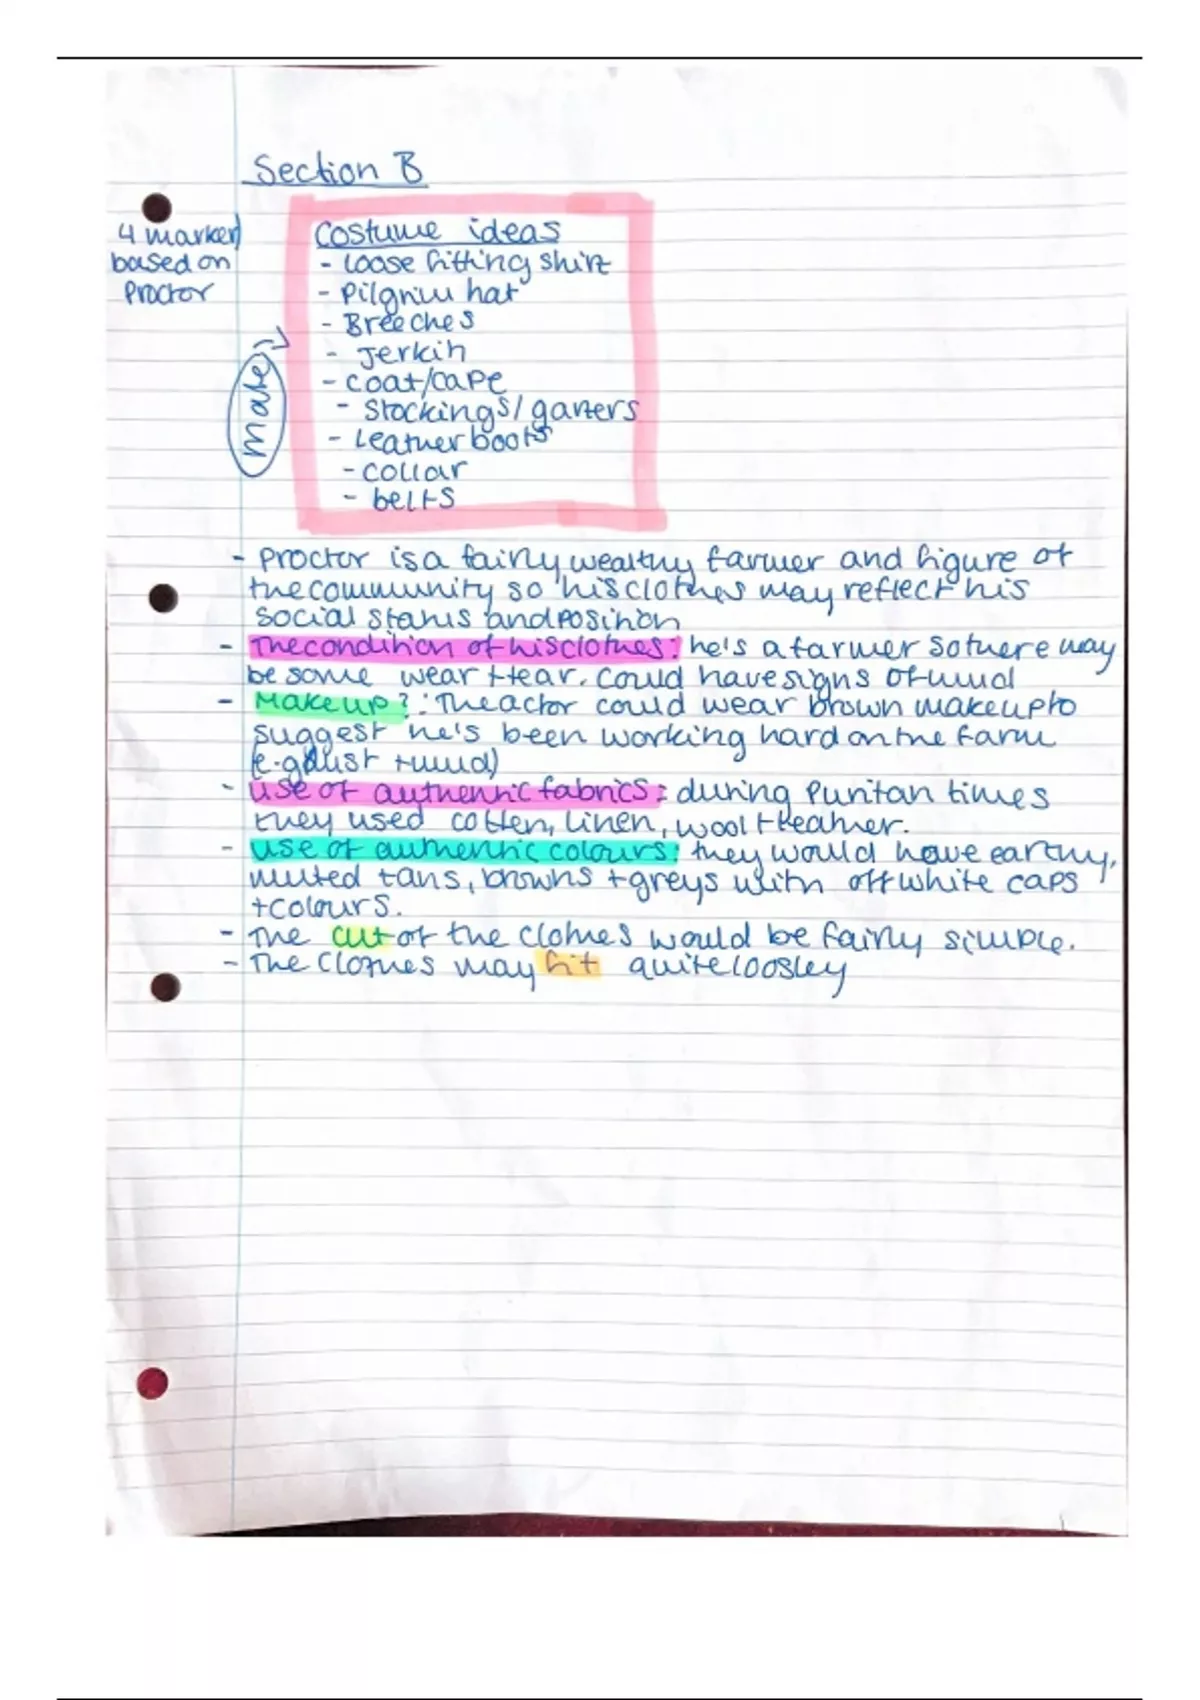 Section B
4 marker
based on
Proctor
Male
Costume ideas
- loose fitting shirt
- Pilgrim hat
- Breeches
- Jerkin
- coat/cape
- Stockings/garters
- Leather boots
- collar
- belts
- Proctor is a fairly wealthy farmer and figure of
the community so his clothes may reflect his
social status and position
- The condition of his clothes: he's a farmer so there may
be some wear + tear. Could have signs of mud
- Makeup?: The actor could wear brown makeup to
suggest he's been working hard on the farm
(e.g dust + mud)
- Use of authentic fabrics: during Puritan times
they used cotten, linen, wool + leather.
- Use of authentic colours: they would have earthy,
muted tans, browns + greys with off white caps
+ colours.
- The cut of the clothes would be fairly simple.
- The clothes may fit quite loosley